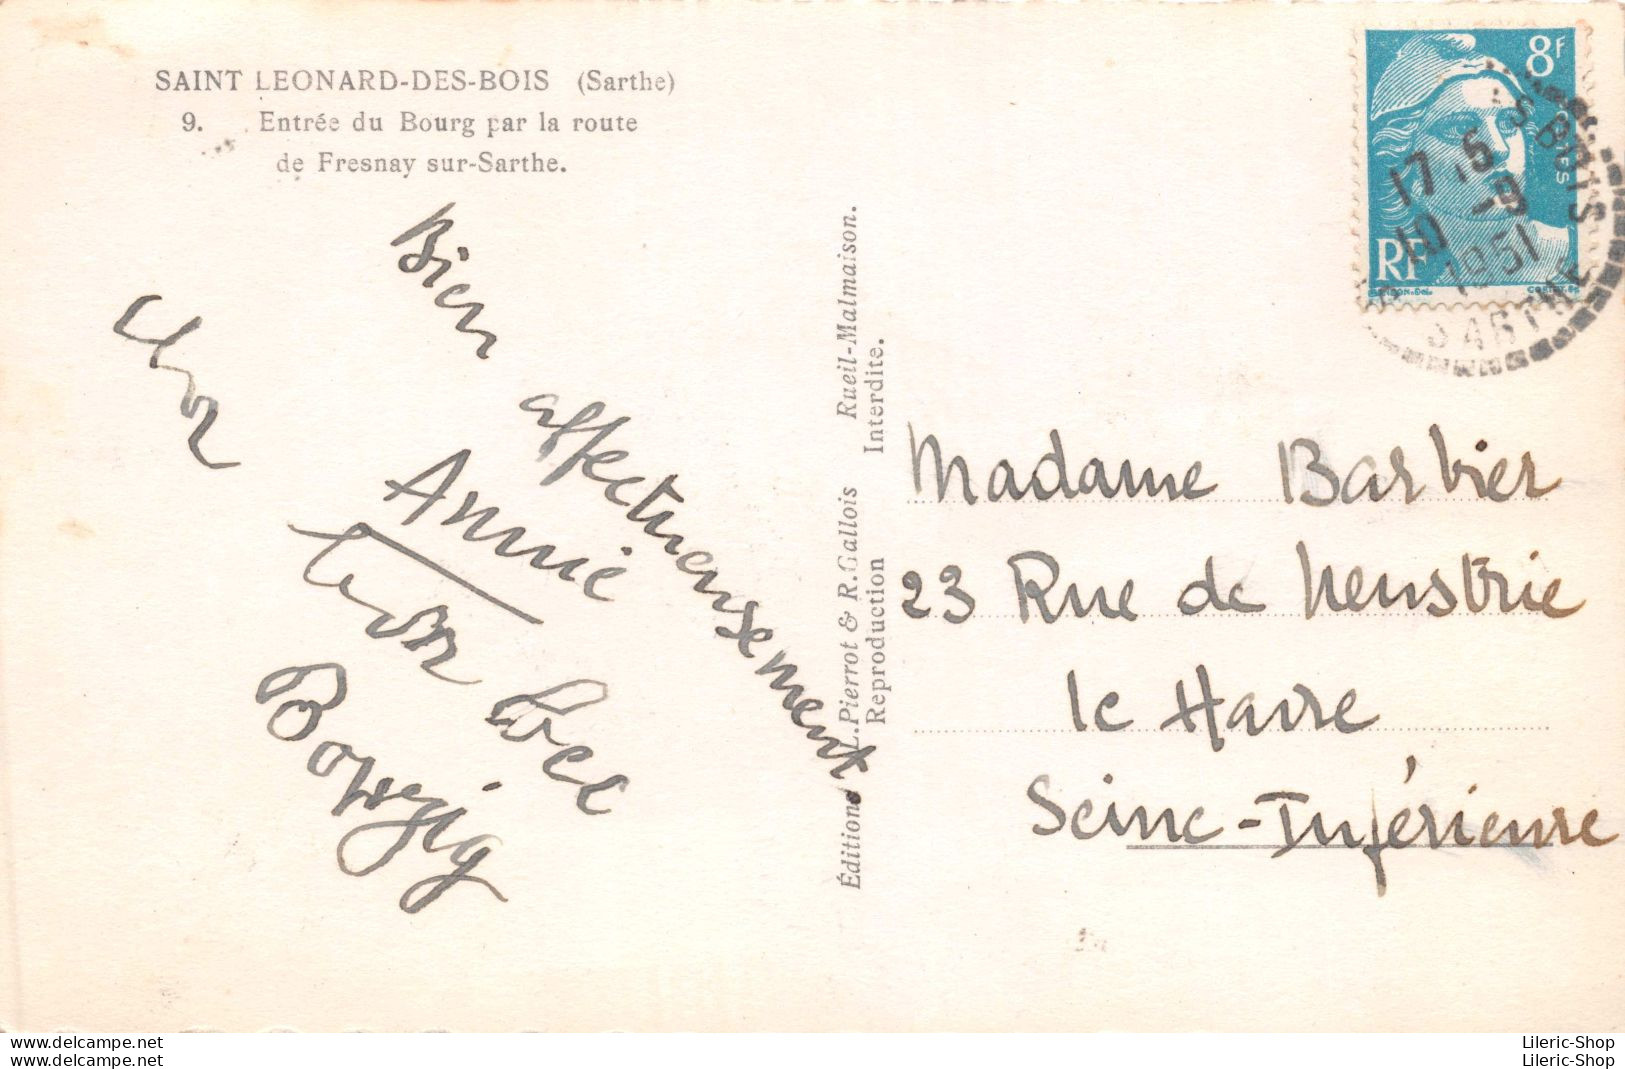 SAINT LEONARD-DES-BOIS (Sarthe)
9. Entrée du Bourg par la route
de Fresnay sur-Sarthe.
Bien affectueusement
Annie
Édition L. Pierrot & R. Gallois Rueil-Malmaison.
Reproduction Interdite.
8F
RF
17 15
10 -9
1951
S BOIS
SARTHE
Madame Barbier
23 Rue de Neustrie
le Havre
Seine-Inférieure
Lileric-Shop
Lileric-Shop
www.delcampe.net
www.delcampe.net